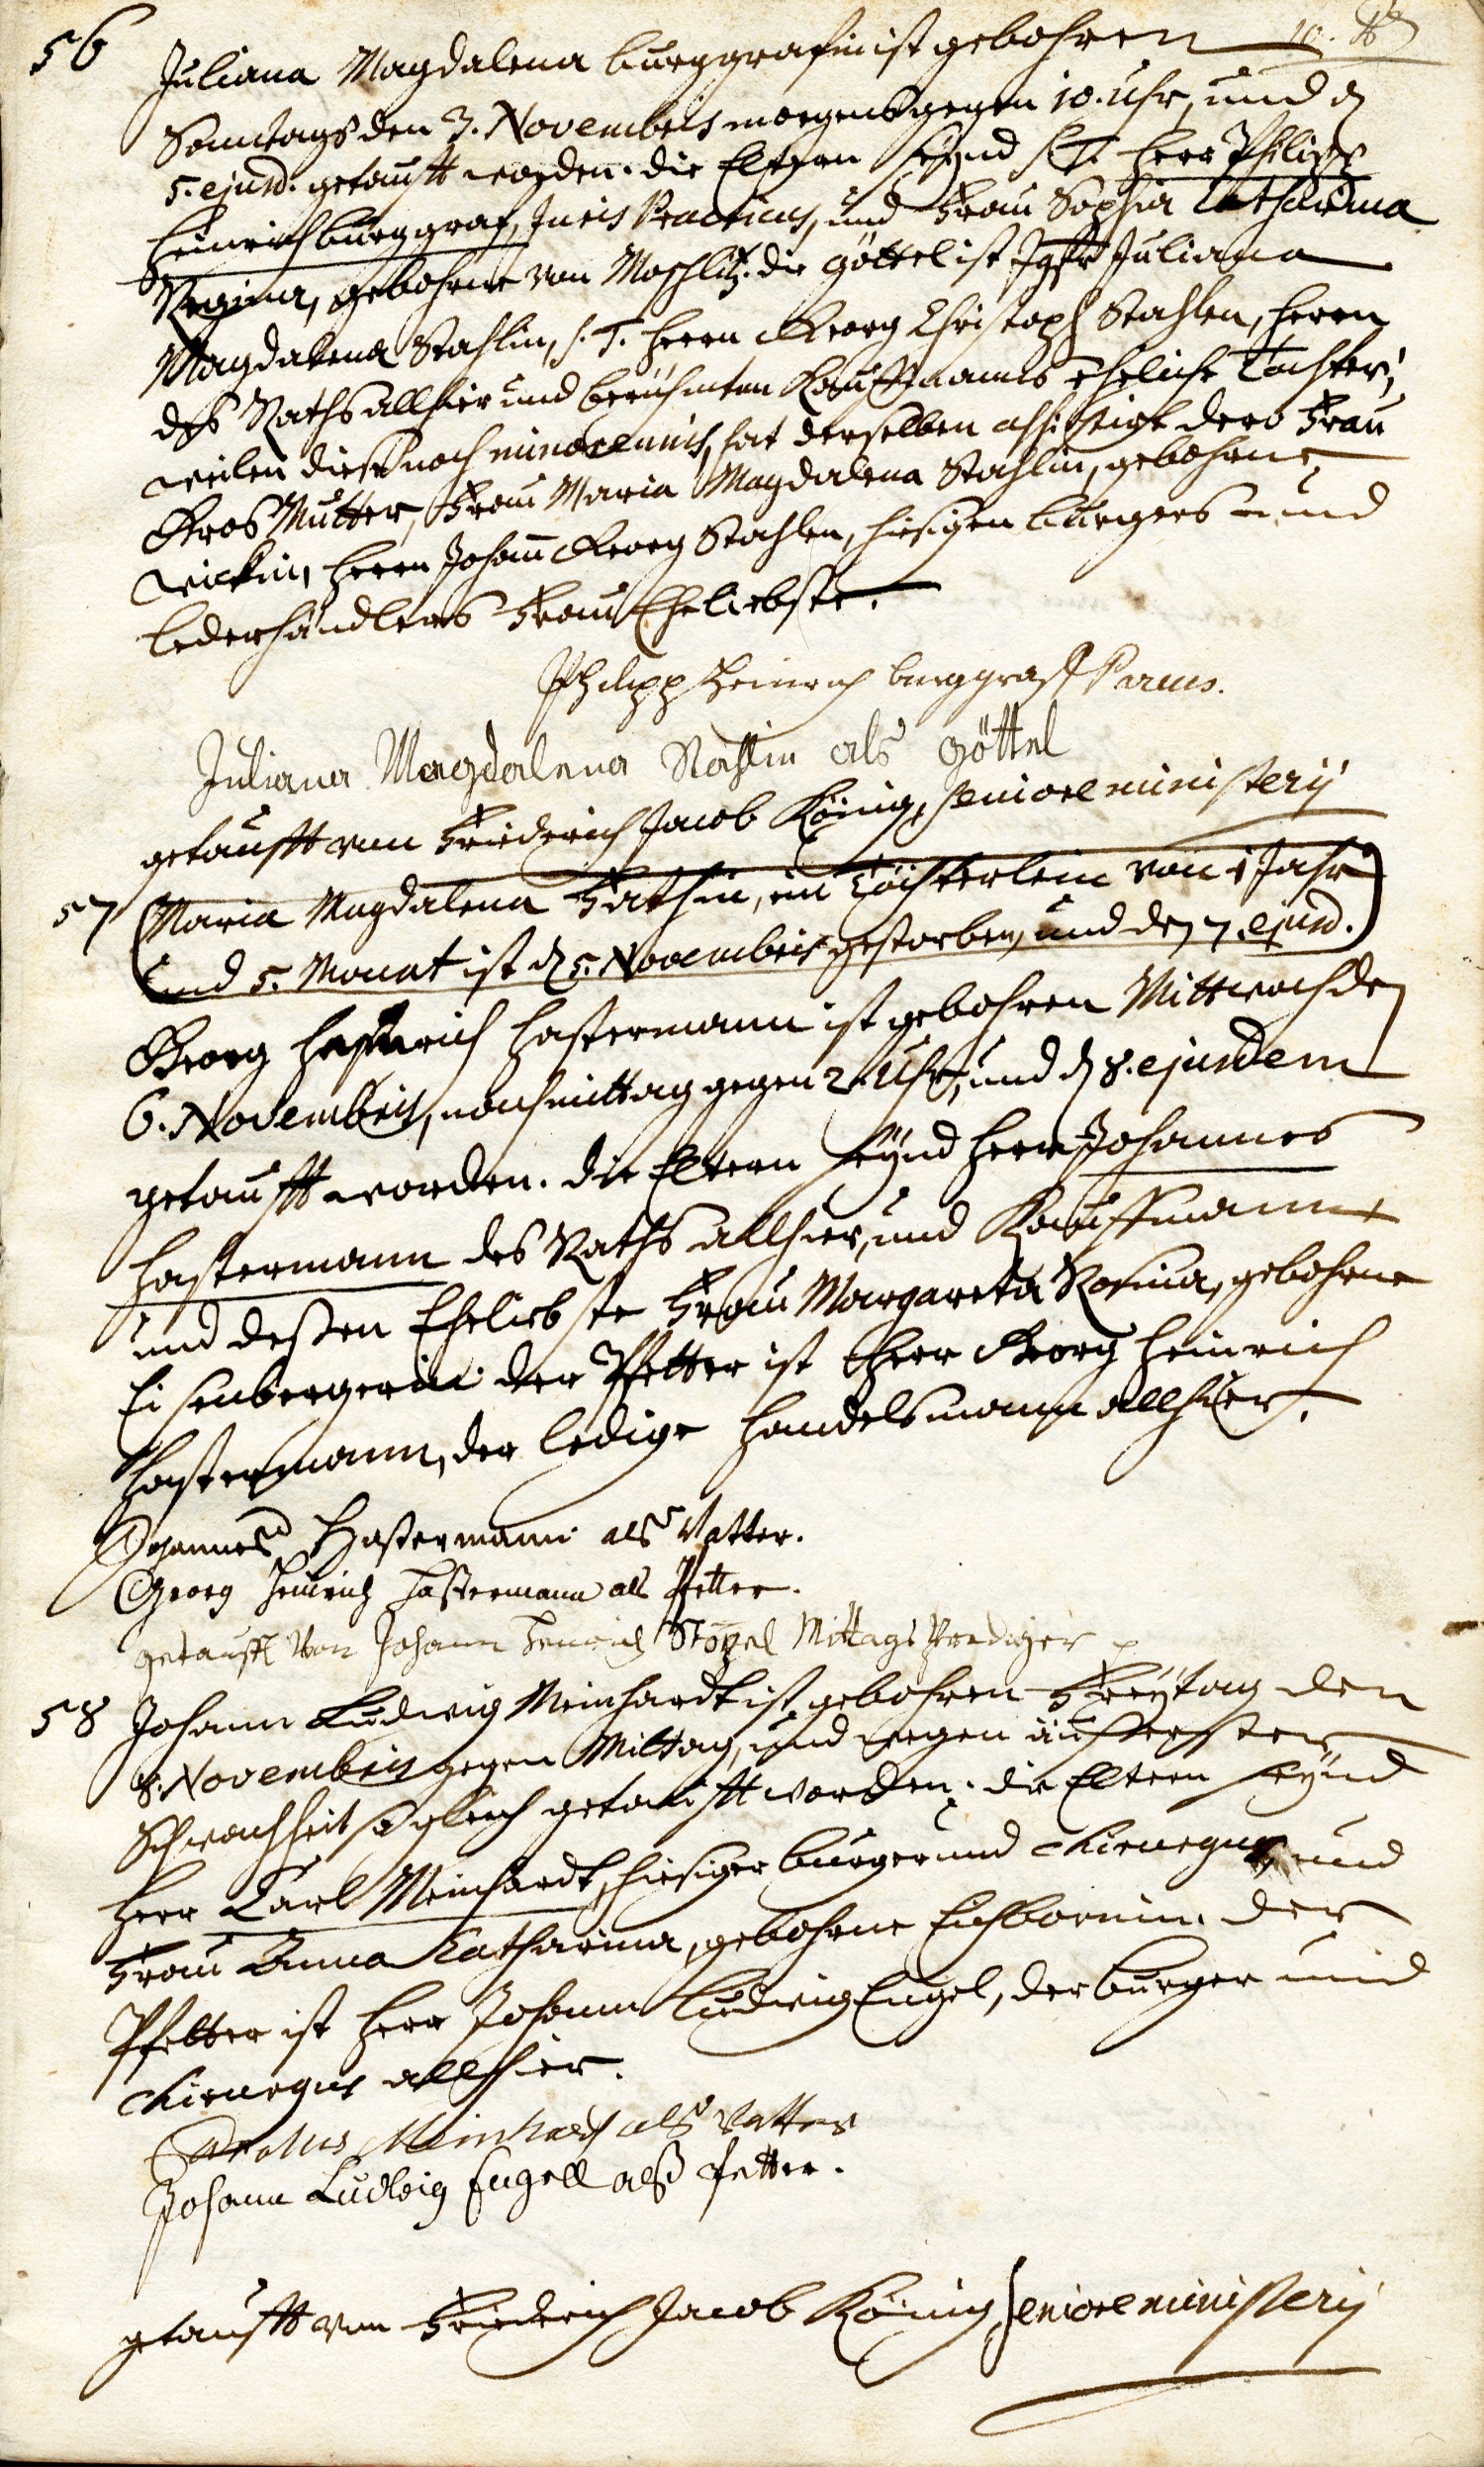 56 Juliana Magdalena burggrafin ist gebohren
Sontags den 3. Novembris morgens gegen 10. Uhr, und d.
5. ejusd. getaufft worden. die Eltern seynd S.T. Herr Philipp
Heinrich burggraf, Juris Practicus, und Frau Sophia Catharina
Regina, gebohrne von Moschlitz. die göttel ist Jgfr Juliana
Magdalena Stahlin, S.T. Herrn Georg Christoph Stahlen, Herrn
des Raths allhier und berühmten Kauffmanns eheliche Tochter;
weilen diese noch minorennis, hat derselben assistirt dero Frau
Gros Mutter, Frau Maria Magdalena Stahlin, gebohrne
Wickin, Herrn Johann Georg Stahlen, hiesigen burgers und
lederhändlers Frau Eheliebste.
Philipp Heinrich burggraff Parens.
Juliana Magdalena Stahlin als göttel
getaufft von Friederich Jacob König, seniore ministerij
57 (Maria Magdalena Fathin, ein Töchterlein von 1 Jahr
und 5. Monat ist d. 5. Novembris gestorben, und den 7. ejusd.)
Georg Heinrich Hastermann ist gebohren Mittwoch den
6. Novembris, nachmittag gegen 2. Uhr, und d. 8. ejusdem
getaufft worden. die Eltern seynd Herr Johannes
Hastermann des Raths allhier, und Kauffmann
und deßen Eheliebste Frau Margareta Rosina, gebohrne
Eisenbergerin. der Pfetter ist Herr Georg Heinrich
Hastermann, der ledige handelsmann allhier.
Johannes Hastermann als Vatter.
Georg Heinrich Hastermann als Petter.
getaufft Von Johann Henrich Stözel Mittags Prediger
58 Johann Ludwig Meinhardt ist gebohren Freytag den
8. Novembris gegen Mittag, und wegen äusserster
Schwachheit so gleich getaufft worden. die Eltern seynd
Herr Carl Meinhardt, hiesiger burger und Chirurgus, und
Frau Anna Catharina, gebohrne Eichbornin. der
Pfetter ist Herr Johann Ludwig Engel, der burger und
Chirurgus allhier.
Carolus Meinhardt als Vatter
Johann Ludwig Engell alß Petter.
getaufft von Friederich Jacob König, seniore ministerij